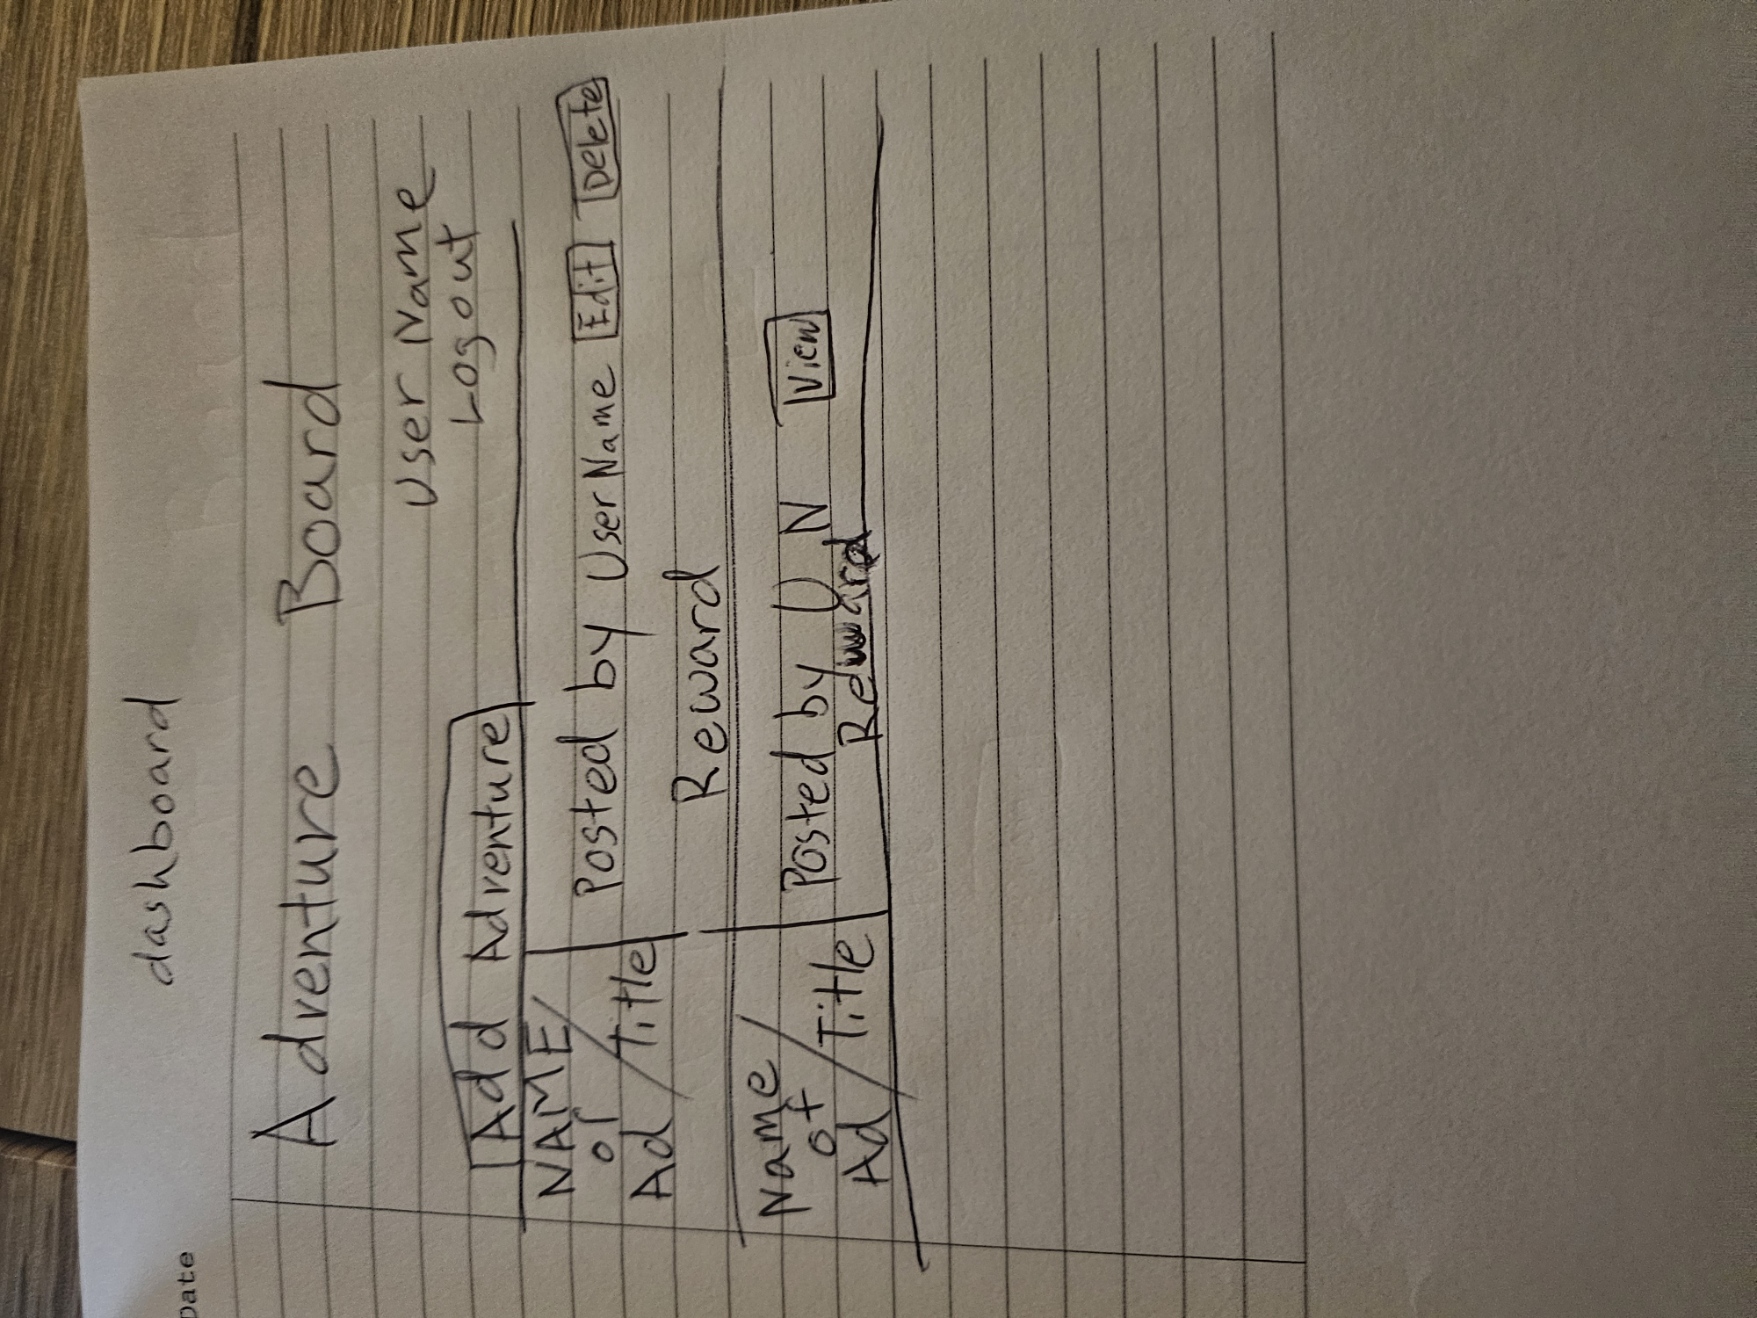 dashboard
Date
Adventure Board
User Name
Logout
Add Adventure
NAME/
of
Ad/Title
Posted by UserName Edit Delete
Reward
Name/
of
Ad/Title
Posted by U.N View
Reward